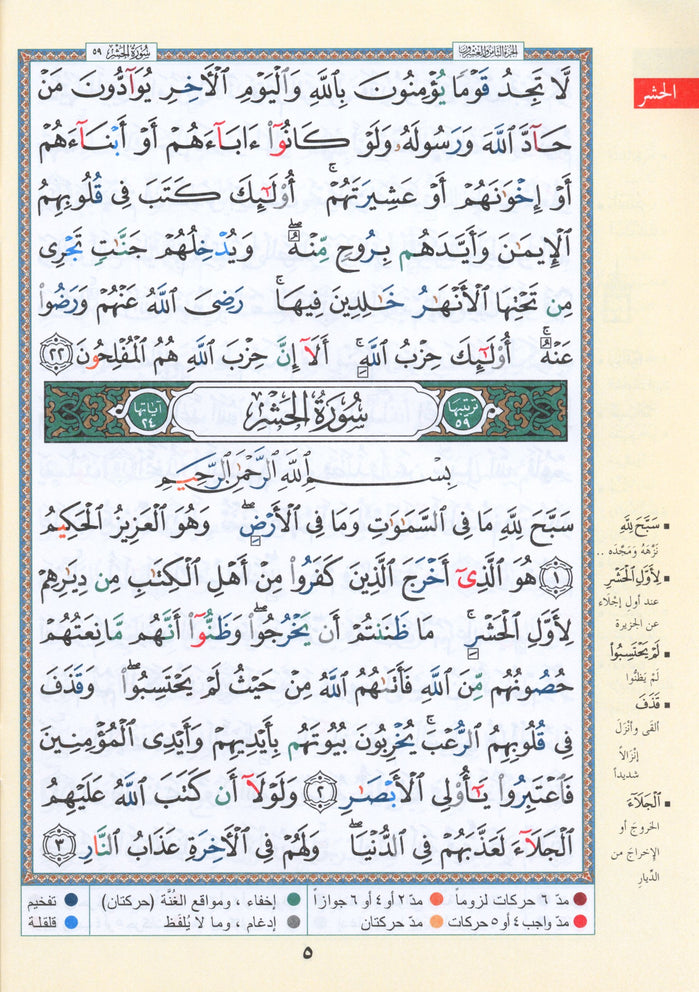 سُورَةُ الحَشْر ٥٩
الجزء الثامن والعشرون
الحشر
لَّا تَجِدُ قَوْمًا يُؤْمِنُونَ بِٱللَّهِ وَٱلْيَوْمِ ٱلْأَخِرِ يُوَآدُّونَ مَنْ
حَآدَّ ٱللَّهَ وَرَسُولَهُۥ وَلَوْ كَانُوٓا۟ ءَابَآءَهُمْ أَوْ أَبْنَآءَهُمْ
أَوْ إِخْوَٰنَهُمْ أَوْ عَشِيرَتَهُمْ ۚ أُو۟لَٰٓئِكَ كَتَبَ فِى قُلُوبِهِمُ
ٱلْإِيمَٰنَ وَأَيَّدَهُم بِرُوحٍ مِّنْهُ ۖ وَيُدْخِلُهُمْ جَنَّٰتٍ تَجْرِى
مِن تَحْتِهَا ٱلْأَنْهَٰرُ خَٰلِدِينَ فِيهَا ۚ رَضِىَ ٱللَّهُ عَنْهُمْ وَرَضُوا۟
عَنْهُ ۚ أُو۟لَٰٓئِكَ حِزْبُ ٱللَّهِ ۚ أَلَآ إِنَّ حِزْبَ ٱللَّهِ هُمُ ٱلْمُفْلِحُونَ ٢٢
ترتيبها ٥٩ سُورَةُ الحَشْرِ آياتها ٢٤
بِسْمِ ٱللَّهِ ٱلرَّحْمَٰنِ ٱلرَّحِيمِ
سَبَّحَ لِلَّهِ مَا فِى ٱلسَّمَٰوَٰتِ وَمَا فِى ٱلْأَرْضِ ۖ وَهُوَ ٱلْعَزِيزُ ٱلْحَكِيمُ
١ هُوَ ٱلَّذِىٓ أَخْرَجَ ٱلَّذِينَ كَفَرُوا۟ مِنْ أَهْلِ ٱلْكِتَٰبِ مِن دِيَٰرِهِمْ
لِأَوَّلِ ٱلْحَشْرِ ۚ مَا ظَنَنتُمْ أَن يَخْرُجُوا۟ ۖ وَظَنُّوٓا۟ أَنَّهُم مَّانِعَتُهُمْ
حُصُونُهُم مِّنَ ٱللَّهِ فَأَتَىٰهُمُ ٱللَّهُ مِنْ حَيْثُ لَمْ يَحْتَسِبُوا۟ ۖ وَقَذَفَ
فِى قُلُوبِهِمُ ٱلرُّعْبَ ۚ يُخْرِبُونَ بُيُوتَهُم بِأَيْدِيهِمْ وَأَيْدِى ٱلْمُؤْمِنِينَ
فَٱعْتَبِرُوا۟ يَٰٓأُو۟لِى ٱلْأَبْصَٰرِ ٢ وَلَوْلَآ أَن كَتَبَ ٱللَّهُ عَلَيْهِمُ
ٱلْجَلَآءَ لَعَذَّبَهُمْ فِى ٱلدُّنْيَا ۖ وَلَهُمْ فِى ٱلْأَخِرَةِ عَذَابُ ٱلنَّارِ ٣
▪ سَبَّحَ لِلَّهِ
نَزَّهَهُ وَمَجَّدَه ..
▪ لِأَوَّلِ الحَشْرِ
عند أولِ إِجْلَاء
عن الجزيرة
▪ لَمْ يَحْتَسِبُوا
لَمْ يَظُنُّوا
▪ قَذَفَ
ألقى وأنْزَلَ
إنْزَالاً
شديداً
▪ الْجَلَاءَ
الخروجَ أو
الإخراجَ من
الدِّيارِ
مدّ ٦ حركات لزوماً مدّ ٢ أو ٤ أو ٦ جوازاً إخفاء ، ومواقع الغُنَّة (حركتان) تفخيم
مدّ واجب ٤ أو ٥ حركات مدّ حركتان إدغام ، وما لا يُلفَظ قلقلة
٥